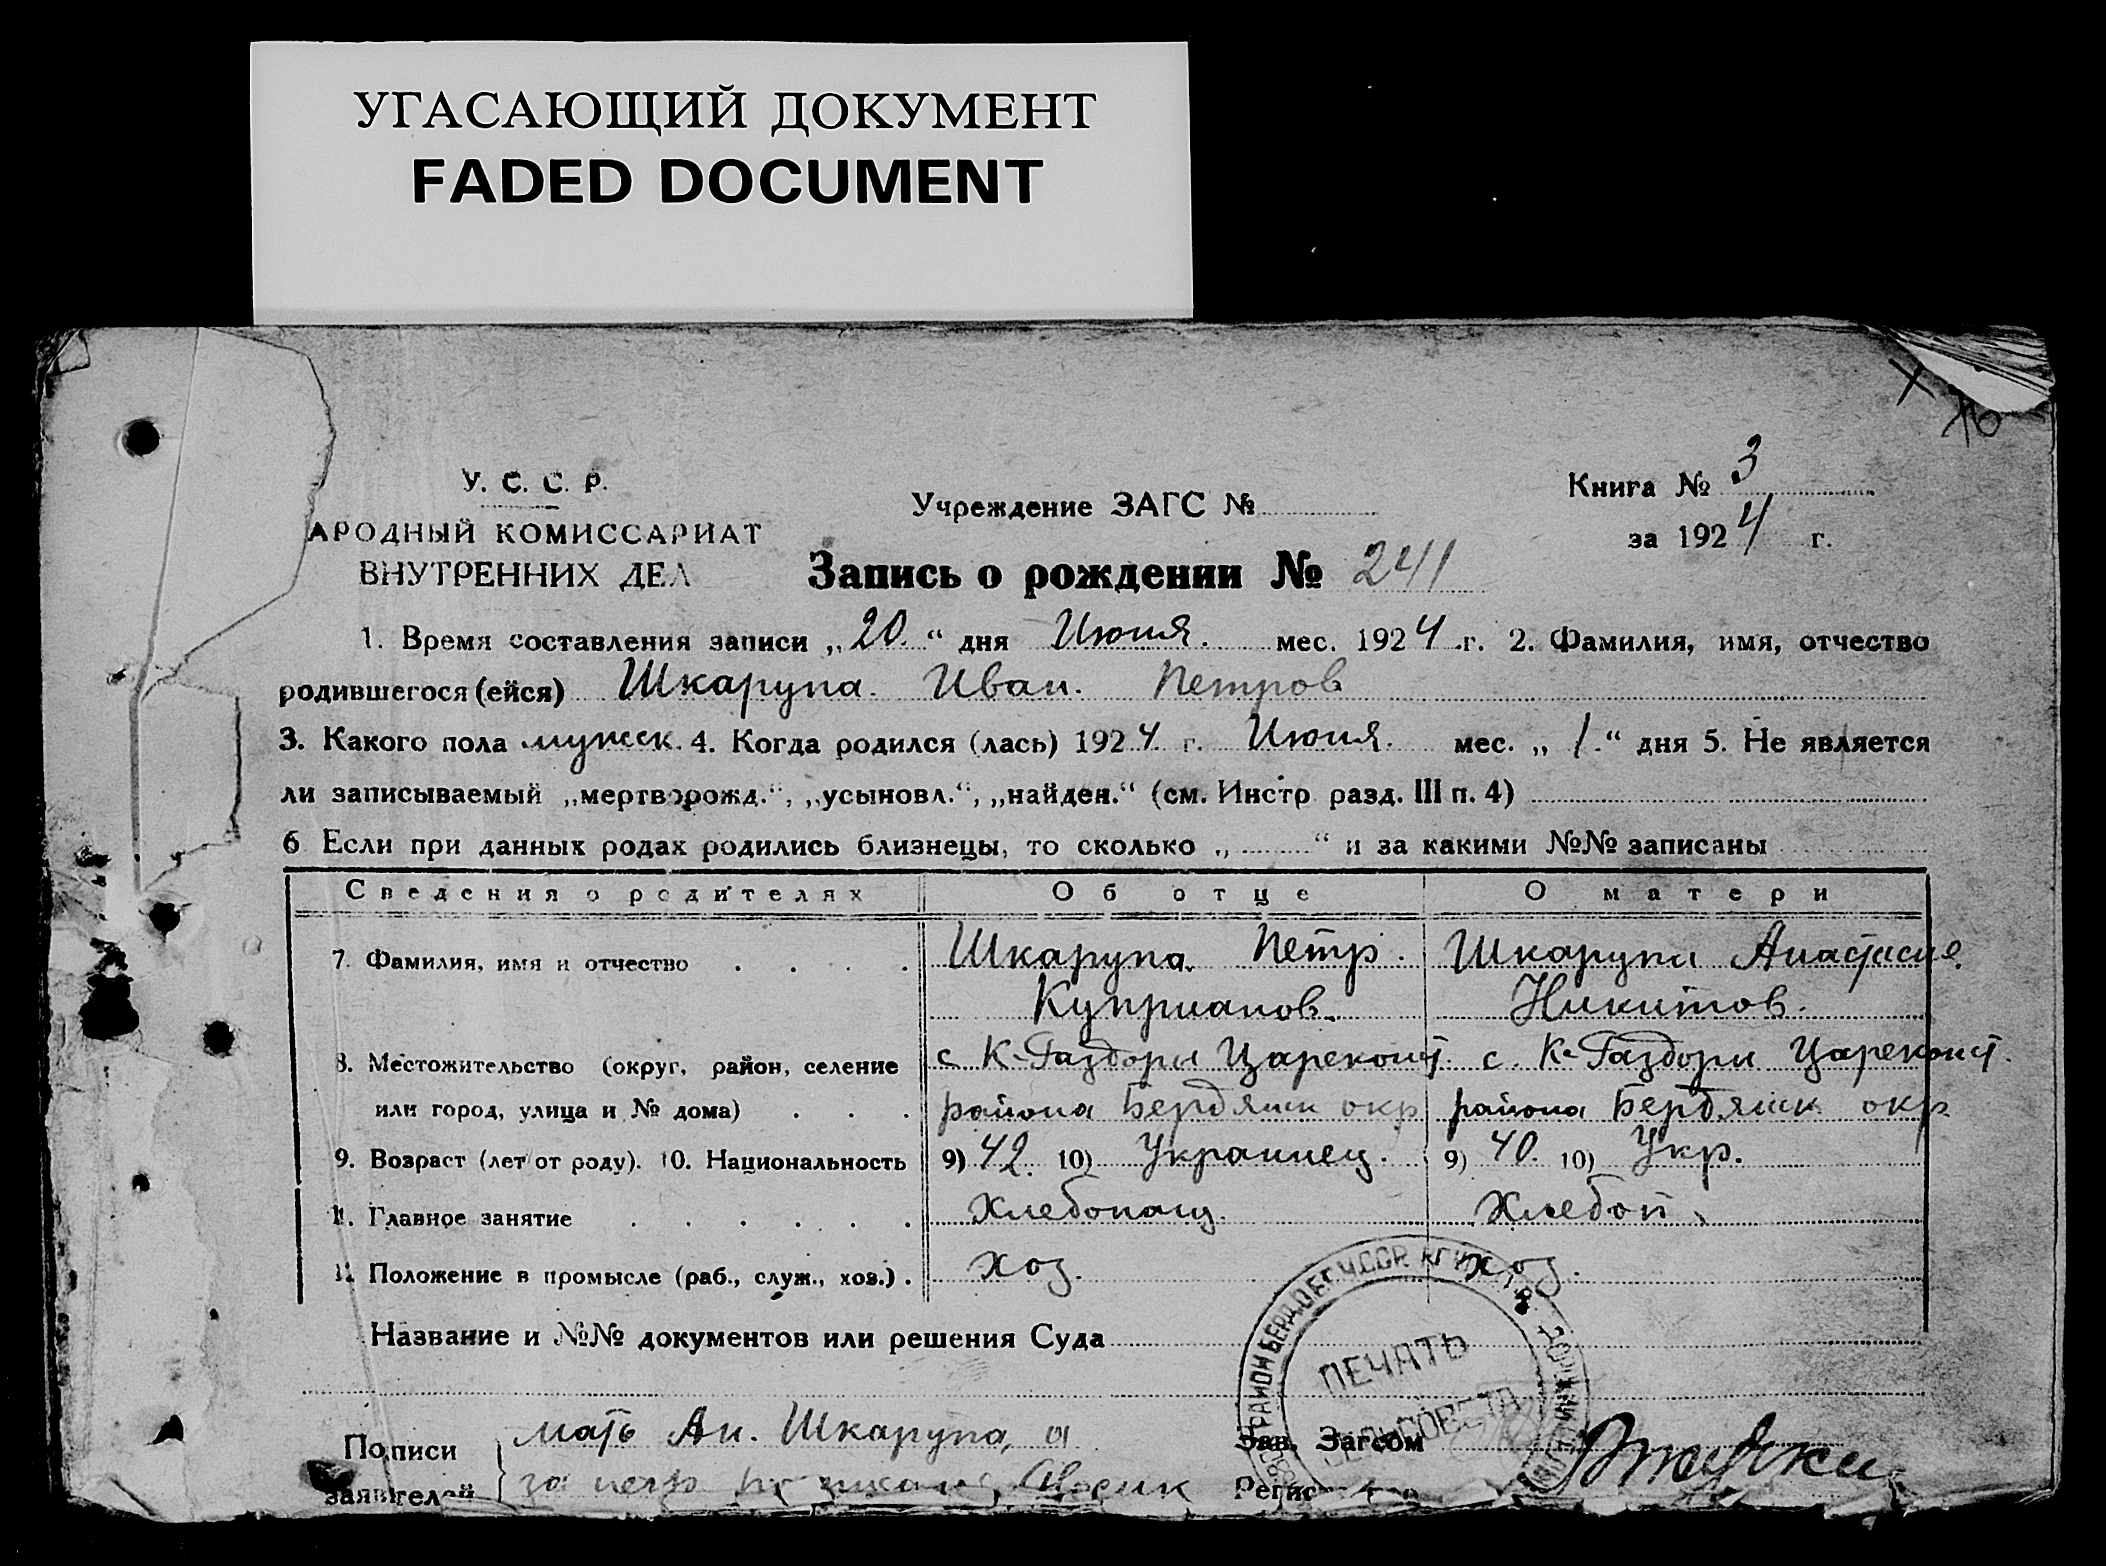 УГАСАЮЩИЙ ДОКУМЕНТ
FADED DOCUMENT
У. С. С. Р.
АРОДНЫЙ КОМИССАРИАТ
ВНУТРЕННИХ ДЕЛ
Учреждение ЗАГС №
Книга № 3
за 1924 г.
Запись о рождении № 241
1. Время составления записи „20.“ дня Июня. мес. 1924 г. 2. Фамилия, имя, отчество
родившегося (ейся) Шкарупа. Иван. Петров
3. Какого пола мужск. 4. Когда родился (лась) 1924 г. Июня. мес. „1.“ дня 5. Не является
ли записываемый „мертворожд.“, „усыновл.“, „найден.“ (см. Инстр разд. III п. 4)
6 Если при данных родах родились близнецы, то сколько „ “ и за какими №№ записаны
Сведения о родителях Об отце О матери
7. Фамилия, имя и отчество Шкарупа Петр. Шкарупа Анастасие
Куприанов. Никитов.
8. Местожительство (округ, район, селение с К-Газдоры Цареконст. с. К-Газдори Цареконст.
или город, улица и № дома) района Бердянск окр района Бердянск окр
9. Возраст (лет от роду). 10. Национальность 9) 42. 10) Украинец. 9) 40. 10) Укр.
11. Главное занятие Хлебопащ. Хлебоп.
12 Положение в промысле (раб., служ., хоз.) . хоз. хоз.
Название и №№ документов или решения Суда
ПЕЧАТЬ
СЕЛЬСОВЕТА
По писи мать Ан. Шкарупа, а Зав. Загсом
заявителей за негр